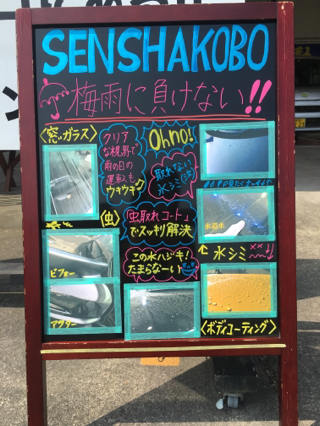 SENSHAKOBO
梅雨に負けない!!
〈窓ガラス〉
クリア
な視界で
雨の日の
運転も
ウキウキ
Ohno!
取れない
水シミ
〈虫〉
「虫取れコート」
でスッキリ解決
ビフォー
アフター
この水ハジキ!
たまらなーい
水シミ
〈ボディコーティング〉